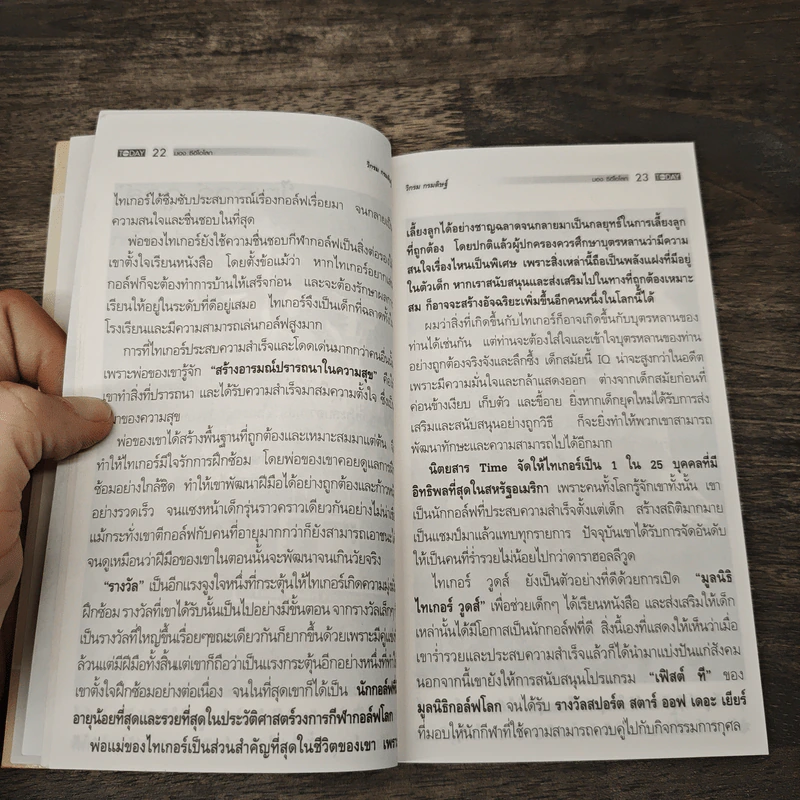 TODAY 22 มอง ซีอีโอโลก
วิกรม
ไทเกอร์ได้ซึมซับประสบการณ์เรื่องกอล์ฟเรื่อยมา จนกลาย
ความสนใจและชื่นชอบในที่สุด
พ่อของไทเกอร์ยังใช้ความชื่นชอบกีฬากอล์ฟเป็นสิ่งต่อรอง
เขาตั้งใจเรียนหนังสือ โดยตั้งข้อแม้ว่า หากไทเกอร์อยาก
กอล์ฟก็จะต้องทำการบ้านให้เสร็จก่อน และจะต้องรักษาผล
เรียนให้อยู่ในระดับที่ดีอยู่เสมอ ไทเกอร์จึงเป็นเด็กที่ฉลาด
โรงเรียนและมีความสามารถเล่นกอล์ฟสูงมาก
การที่ไทเกอร์ประสบความสำเร็จและโดดเด่นมากกว่าคน
เพราะพ่อของเขารู้จัก “สร้างอารมณ์ปรารถนาในความสุข”
เขาทำสิ่งที่ปรารถนา และได้รับความสำเร็จมาสมความตั้งใจ
ของความสุข
พ่อของเขาได้สร้างพื้นฐานที่ถูกต้องและเหมาะสมมาแต่ต้น
ทำให้ไทเกอร์มีใจรักการฝึกซ้อม โดยพ่อของเขาคอยดูแลการ
ซ้อมอย่างใกล้ชิด ทำให้เขาพัฒนาฝีมือได้อย่างถูกต้องและก้าว
อย่างรวดเร็ว จนแซงหน้าเด็กรุ่นราวคราวเดียวกันอย่างไม่
แม้กระทั่งเขาตีกอล์ฟกับคนที่อายุมากกว่าก็ยังสามารถเอาชนะ
จนดูเหมือนว่าฝีมือของเขาในตอนนั้นจะพัฒนาจนเกินวัยจริง
“รางวัล” เป็นอีกแรงจูงใจหนึ่งที่กระตุ้นให้ไทเกอร์เกิดความ
ฝึกซ้อม รางวัลที่เขาได้รับนั้นเป็นไปอย่างมีขั้นตอน จากรางวัลเล็กๆ
เป็นรางวัลที่ใหญ่ขึ้นเรื่อยๆขณะเดียวกันก็ยากขึ้นด้วยเพราะมี
ล้วนแต่มีฝีมือทั้งสิ้นแต่เขาก็ถือว่าเป็นแรงกระตุ้นอีกอย่างหนึ่ง
เขาตั้งใจฝึกซ้อมอย่างต่อเนื่อง จนในที่สุดเขาก็ได้เป็น นักกอล์ฟ
อายุน้อยที่สุดและรวยที่สุดในประวัติศาสตร์วงการกีฬากอล์ฟโลก
พ่อแม่ของไทเกอร์เป็นส่วนสำคัญที่สุดในชีวิตของเขา
วิกรม กรมดิษฐ์
มอง ซีอีโอโลก 23 TODAY
เลี้ยงลูกได้อย่างชาญฉลาดจนกลายมาเป็นกลยุทธ์ในการเลี้ยงลูก
ที่ถูกต้อง โดยปกติแล้วผู้ปกครองควรศึกษาบุตรหลานว่ามีความ
สนใจเรื่องไหนเป็นพิเศษ เพราะสิ่งเหล่านี้ถือเป็นพลังแฝงที่มีอยู่
ในตัวเด็ก หากเราสนับสนุนและส่งเสริมไปในทางที่ถูกต้องเหมาะ
สม ก็อาจจะสร้างอัจฉริยะเพิ่มขึ้นอีกคนหนึ่งในโลกนี้ได้
ผมว่าสิ่งที่เกิดขึ้นกับไทเกอร์ก็อาจเกิดขึ้นกับบุตรหลานของ
ท่านได้เช่นกัน แต่ท่านจะต้องใส่ใจและเข้าใจบุตรหลานของท่าน
อย่างถูกต้องจริงจังและลึกซึ้ง เด็กสมัยนี้ IQ น่าจะสูงกว่าในอดีต
เพราะมีความมั่นใจและกล้าแสดงออก ต่างจากเด็กสมัยก่อนที่
ค่อนข้างเงียบ เก็บตัว และขี้อาย ยิ่งหากเด็กยุคใหม่ได้รับการส่ง
เสริมและสนับสนุนอย่างถูกวิธี ก็จะยิ่งทำให้พวกเขาสามารถ
พัฒนาทักษะและความสามารถไปได้อีกมาก
นิตยสาร Time จัดให้ไทเกอร์เป็น 1 ใน 25 บุคคลที่มี
อิทธิพลที่สุดในสหรัฐอเมริกา เพราะคนทั้งโลกรู้จักเขาทั้งนั้น เขา
เป็นนักกอล์ฟที่ประสบความสำเร็จตั้งแต่เด็ก สร้างสถิติมากมาย
เป็นแชมป์มาแล้วแทบทุกรายการ ปัจจุบันเขาได้รับการจัดอันดับ
ให้เป็นคนที่ร่ำรวยไม่น้อยไปกว่าดาราฮอลลีวูด
ไทเกอร์ วูดส์ ยังเป็นตัวอย่างที่ดีด้วยการเปิด “มูลนิธิ
ไทเกอร์ วูดส์” เพื่อช่วยเด็กๆ ได้เรียนหนังสือ และส่งเสริมให้เด็ก
เหล่านั้นได้มีโอกาสเป็นนักกอล์ฟที่ดี สิ่งนี้เองที่แสดงให้เห็นว่าเมื่อ
เขาร่ำรวยและประสบความสำเร็จแล้วก็ได้นำมาแบ่งปันแก่สังคม
นอกจากนี้เขายังให้การสนับสนุนโปรแกรม “เฟิสต์ ที” ของ
มูลนิธิกอล์ฟโลก จนได้รับ รางวัลสปอร์ต สตาร์ ออฟ เดอะ เยียร์
ที่มอบให้นักกีฬาที่ใช้ความสามารถควบคู่ไปกับกิจกรรมการกุศล